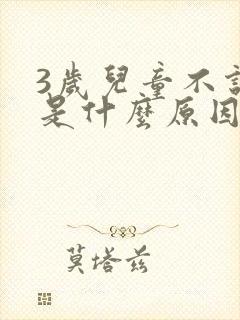 3歲兒童不
是什麼原因
莫塔兹